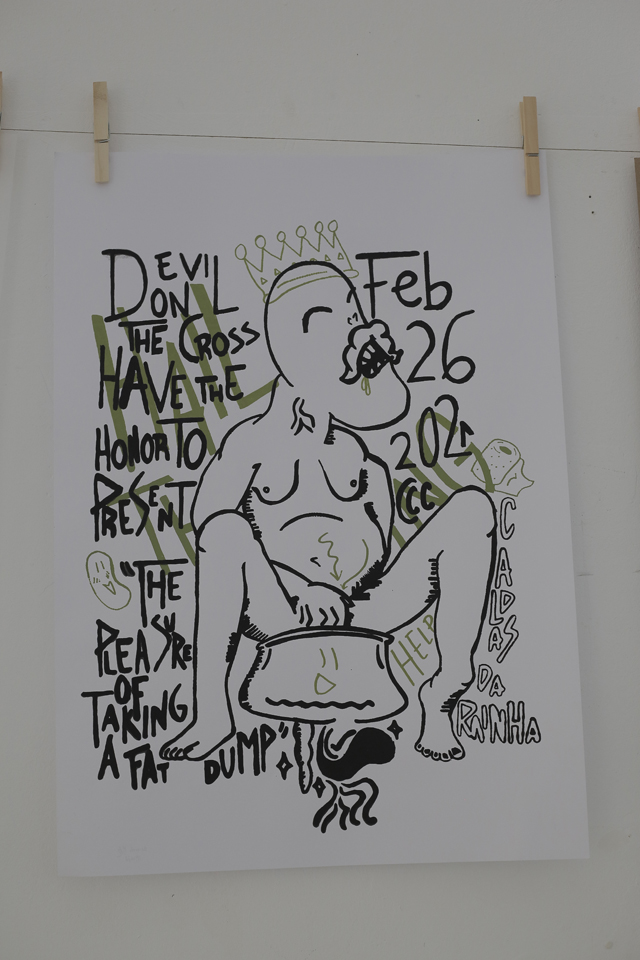 DEVIL
DON IL
THE CROSS
HAVE THE
HONOR TO
PRESENT
"THE
PLEASURE
OF
TAKING
A FAT DUMP"
Feb
26
2021
CCC
CALDAS
DA
RAINHA
HAIL
HELP